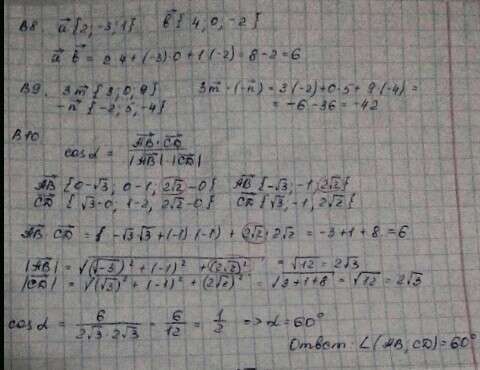 В8 a⃗ {2; -3; 1} b⃗ { 4, 0, -2 }
a⃗ b⃗ = 2·4 + (-3)·0 + 1·(-2) = 8 - 2 = 6
В9. 3m⃗ { 3; 0; 9} 3m⃗ · (-n⃗) = 3(-2) + 0·5 + 9(-4) =
-n⃗ {-2; 5; -4} = -6 - 36 = -42
В10
cos α = AB⃗ · CD⃗ / |AB⃗| · |CD⃗|
AB⃗ {0-√3; 0-1; 2√2-0} AB⃗ {-√3; -1; 2√2}
CD⃗ { √3-0; 1-2; 2√2-0} CD⃗ {√3; -1; 2√2}
AB⃗ · CD⃗ = -√3·√3 + (-1)·(-1) + 2√2·2√2 = -3+1+8 = 6
|AB⃗| = √(-√3)² + (-1)² + (2√2)² = √12 = 2√3
|CD⃗| = √(√3)² + (-1)² + (2√2)² = √3+1+8 = √12 = 2√3
cos α = 6 / 2√3·2√3 = 6/12 = 1/2 => α = 60°
Ответ: ∠(AB, CD) = 60°